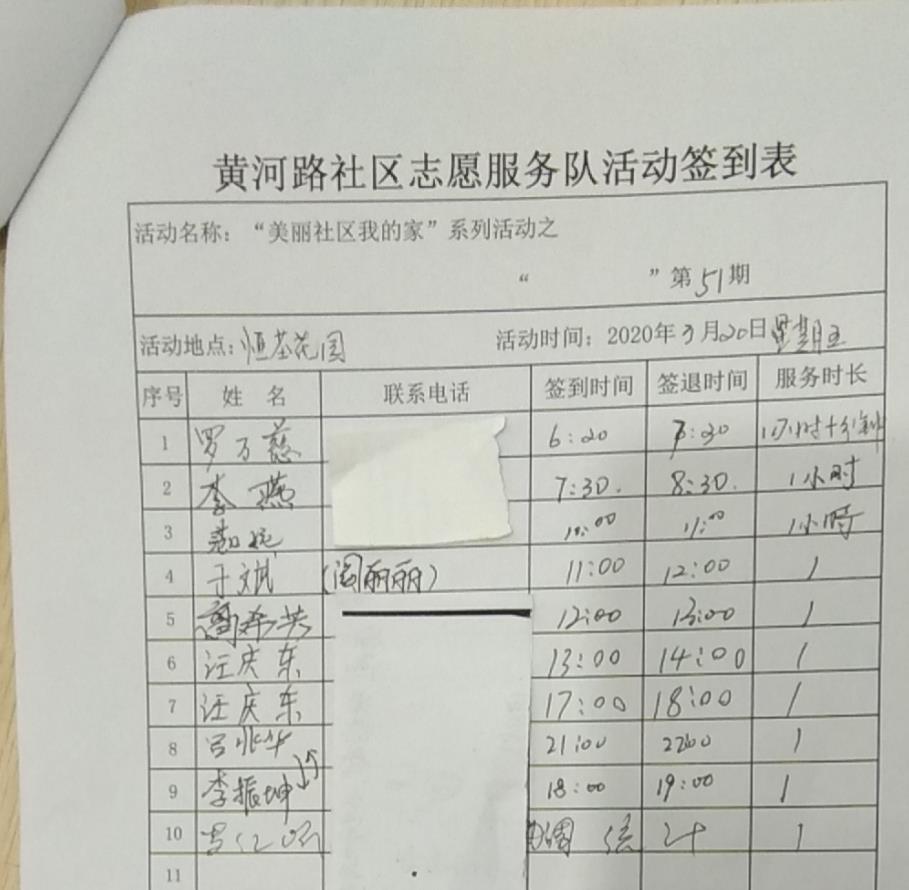 黄河路社区志愿服务队活动签到表
活动名称：“美丽社区我的家”系列活动之
“ ”第51期
活动地点：恒基花园 活动时间：2020年3月20日星期五
序号 姓名 联系电话 签到时间 签退时间 服务时长
1 罗万慈 6:20 7:30 1小时十分钟
2 李燕 7:30. 8:30. 1小时
3 10:00 11:00 1小时
4 于斌 (阎丽丽) 11:00 12:00 1
5 高希英 12:00 13:00 1
6 汪庆东 13:00 14:00 1
7 汪庆东 17:00 18:00 1
8 吕兆华 21:00 22:00 1
9 李振坤 18:00 19:00 1
10 1
11